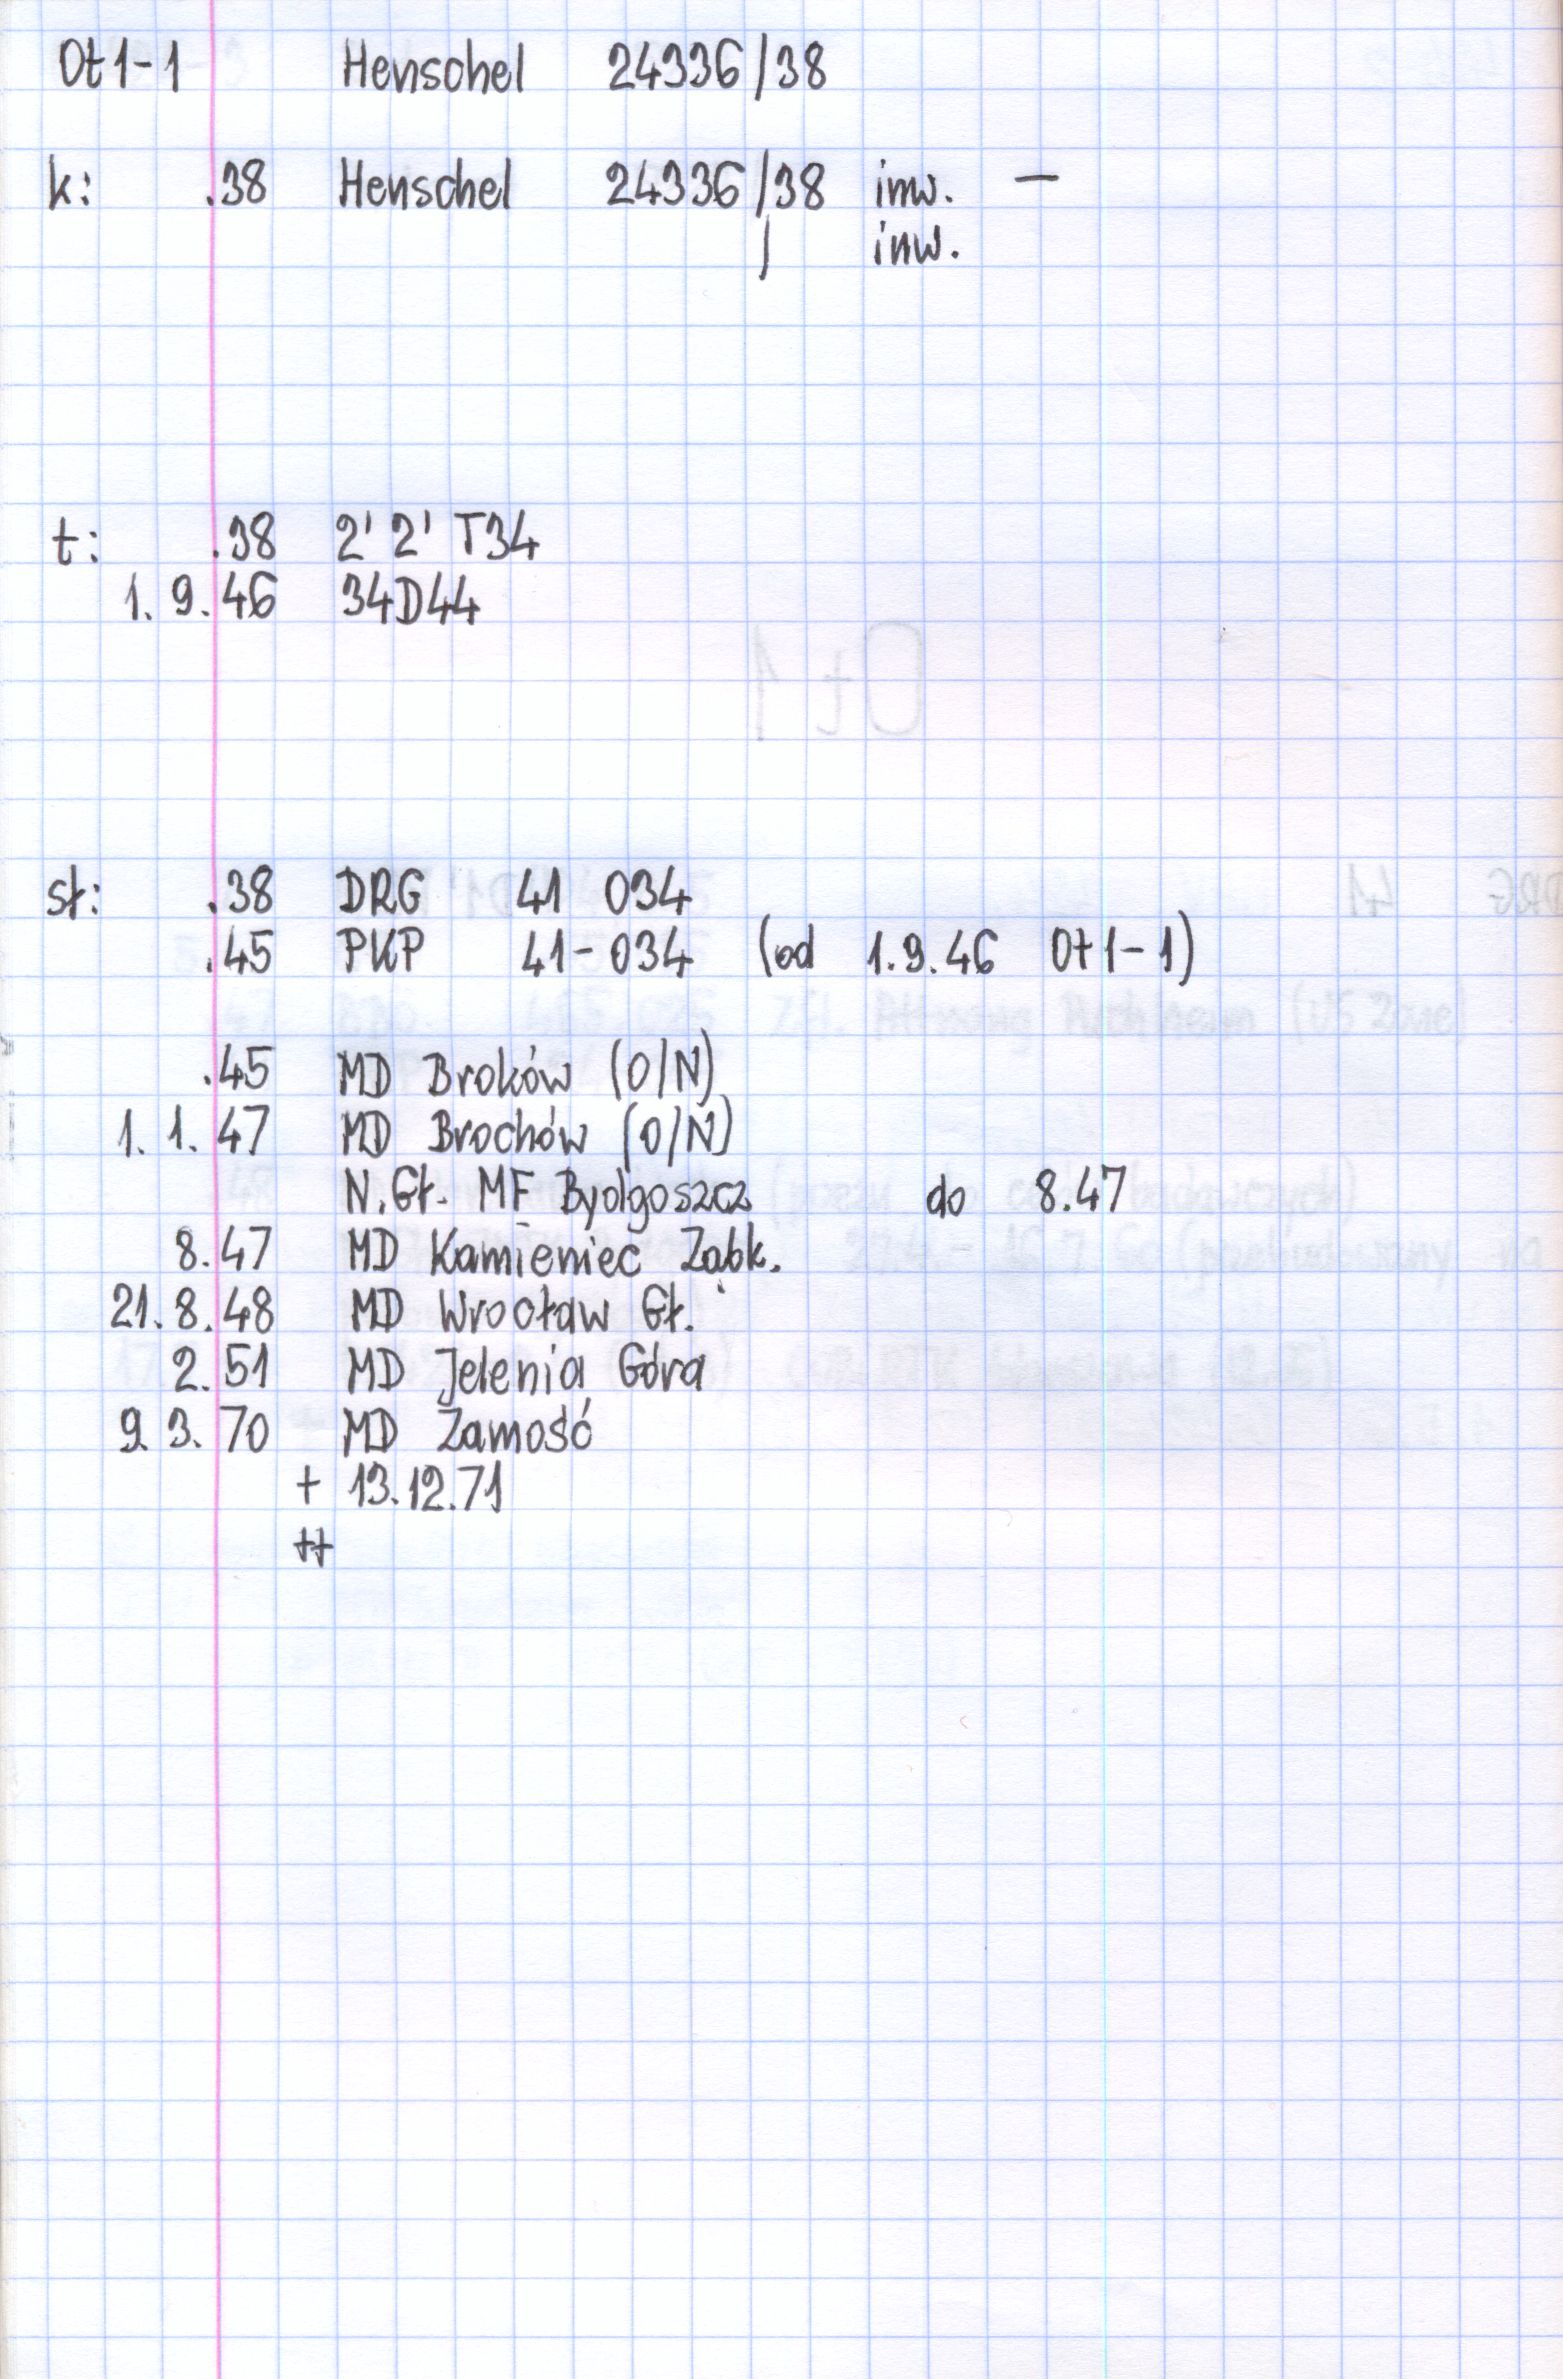 Ot1-1 Henschel 24336/38
k: .38 Henschel 24336/38 inw. —
/ inw.
t: .38 2'2' T34
1. 9. 46 34D44
sł: .38 DRG 41 034
.45 PKP 41-034 (od 1.9.46 Ot1-1)
.45 MD Broków (O/N)
1. 1. 47 MD Brochów (O/N)
N.Gł. MF Bydgoszcz do 8.47
8.47 MD Kamieniec Ząbk.
21. 8. 48 MD Wrocław Gł.
2. 51 MD Jelenia Góra
9. 3. 70 MD Zamość
+ 13.12.71
++